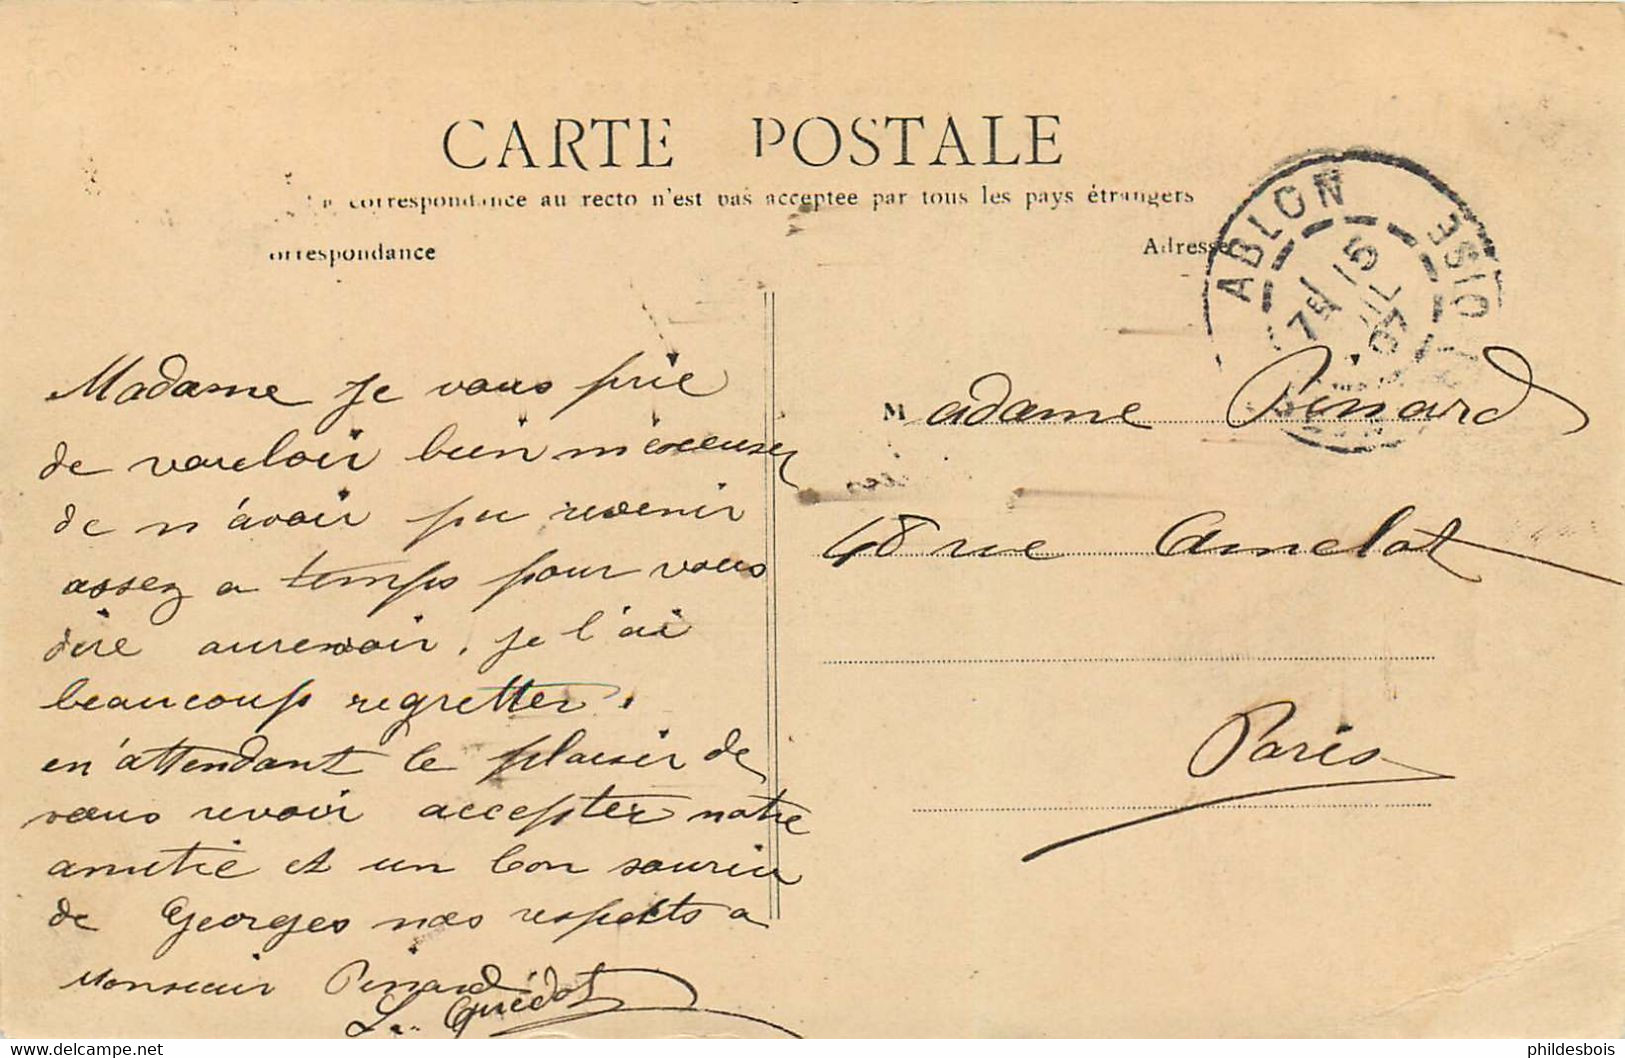 CARTE POSTALE
La correspondance au recto n'est pas acceptee par tous les pays étrangers
orrespondance
Adresse
ABLON
S. OISE
15
07
Madame je vous prie
de vouloir bien m'excuser
de n'avoir pu revenir
assez a temps pour vous
dire aurevoir, je l'ai
beaucoup regretter.
en attendant le plaisir de
vous revoir accepter notre
amitié et un bon sourir
de Georges nos respects a
Monsieur Pinard
Madame Pinard
48 rue Amelot
Paris
phildesbois